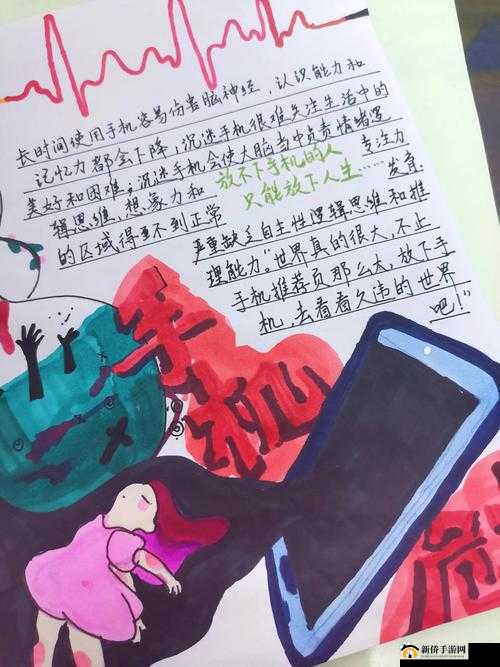 长时间使用手机容易伤害脑神经，认识能力和
记忆力都会下降，沉迷手机很难关注生活中的
美好和困难；沉迷手机会使大脑当中负责情绪逻
辑思维、想象力和
的区域得不到正常
放不下手机的人
只能放下人生……
专注力
发育
严重缺乏自主性逻辑思维和推
理能力。“世界真的很大，不止
手机推荐页那么大，放下手
机，去看看久违的世界
吧！”
手机
危
新侨手游网